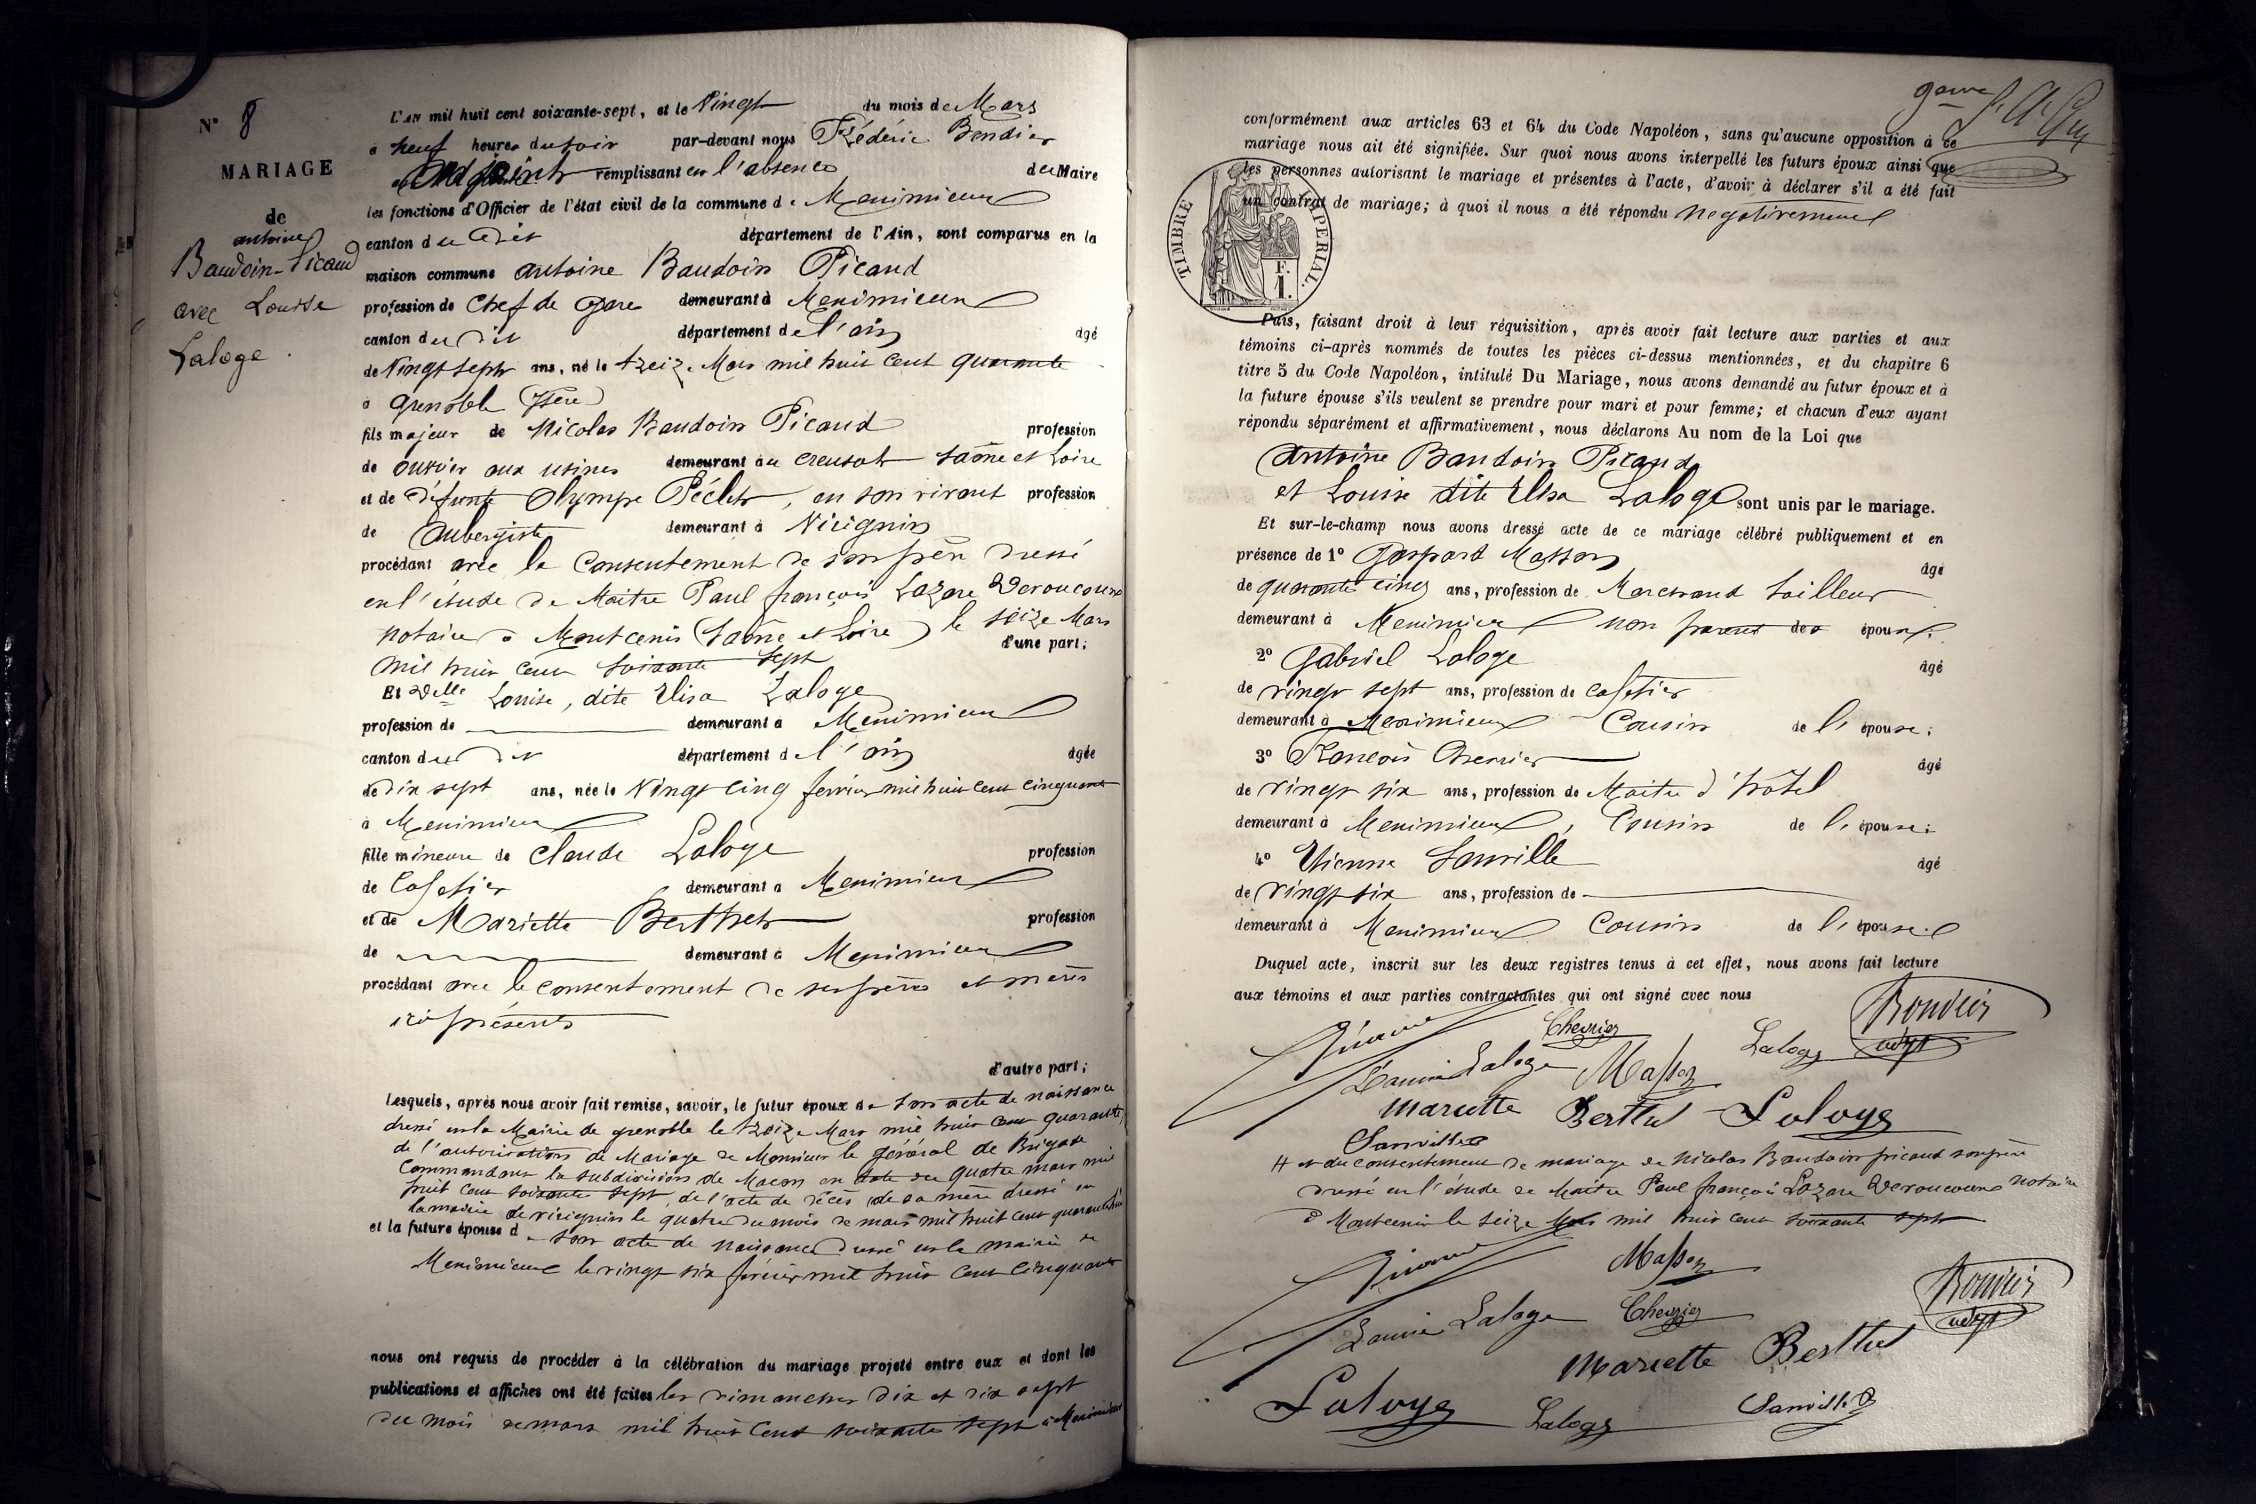 N° 8
MARIAGE
de
antoine
Baudoin-Picaud
avec Louise
Laloge.
L'AN mil huit cent soixante-sept, et le Vingt du mois de Mars
à neuf heures du soir par-devant nous Frédéric
adjoint remplissant en l'absence du Maire
les fonctions d'Officier de l'état civil de la commune de Meximieux
canton du dit département de l'Ain, sont comparus en la
maison commune antoine Baudoin Picaud
profession de Chef de Gare demeurant à Meximieux
canton du dit département de l'ain âgé
de Vingt sept ans, né le treize Mars mil huit cent quarante
à Grenoble (Isère)
fils majeur de Nicolas Baudoin Picaud profession
de ouvrier aux usines demeurant au Creusot Saône et Loire
et de défunte Olympe, en son vivant profession
de Aubergiste demeurant à Virignin
procédant avec le Consentement de son père dressé
en l'étude de Maître Paul françois Lazare
notaire à Montcenis (Saône et Loire) le seize Mars
d'une part;
mil huit cent soixante sept
Et Delle Louise, dite Elisa Laloge
profession de demeurant à Meximieux
canton du dit département de l'ain âgée
de dix sept ans, née le Vingt cinq février mil huit cent cinquante
à Meximieux
fille mineure de Claude Laloge profession
de Cafetier demeurant à Meximieux
et de Mariette Berthet profession
de demeurant à Meximieux
procédant avec le consentement de ses pères et mères
ici présents
d'autre part;
Lesquels, après nous avoir fait remise, savoir, le futur époux de son acte de naissance
dressé en la Mairie de grenoble le treize Mars mil huit cent quarante,
de l'autorisation de Mariage de Monsieur le général de Brigade
Commandant la subdivision de Macon en date du quatre mars mil
huit cent soixante sept, de l'acte de décès de sa mère dressé en
la mairie de virignin le quatre du mois de mars mil huit cent
et la future épouse de son acte de naissance dressé en la mairie de
Meximieux le vingt six février mil huit cent cinquante
nous ont requis de procéder à la célébration du mariage projeté entre eux et dont les
publications et affiches ont été faites les dimanches dix et dix sept
du mois de mars mil huit cent soixante sept à Meximieux
conformément aux articles 63 et 64 du Code Napoléon, sans qu'aucune opposition à ce
mariage nous ait été signifiée. Sur quoi nous avons interpellé les futurs époux ainsi que
les personnes autorisant le mariage et présentes à l'acte, d'avoir à déclarer s'il a été fait
un contrat de mariage; à quoi il nous a été répondu négativement
TIMBRE IMPERIAL.
F.
1.
Puis, faisant droit à leur réquisition, après avoir fait lecture aux parties et aux
témoins ci-après nommés de toutes les pièces ci-dessus mentionnées, et du chapitre 6
titre 5 du Code Napoléon, intitulé Du Mariage, nous avons demandé au futur époux et à
la future épouse s'ils veulent se prendre pour mari et pour femme; et chacun d'eux ayant
répondu séparément et affirmativement, nous déclarons Au nom de la Loi que
Antoine Baudoin Picaud
et Louise dite Elisa Laloge sont unis par le mariage.
Et sur-le-champ nous avons dressé acte de ce mariage célébré publiquement et en
présence de 1° Gaspard Masson âgé
de quarante cinq ans, profession de Marchand tailleur
demeurant à Meximieux non parent des époux;
2° Gabriel Laloge âgé
de vingt sept ans, profession de Cafetier
demeurant à Meximieux Cousin de l'épouse;
3° François Chevrier âgé
de vingt six ans, profession de Maître d'hôtel
demeurant à Meximieux, Cousin de l'épouse;
4° Etienne Sanville âgé
de vingt six ans, profession de
demeurant à Meximieux Cousin de l'épouse.
Duquel acte, inscrit sur les deux registres tenus à cet effet, nous avons fait lecture
aux témoins et aux parties contractantes qui ont signé avec nous
Picaud Chevrier Bouvier
Louise Laloge Masson Laloge adjt
Mariette Berthet Laloge
Sanville
# et du consentement de mariage de Nicolas Baudoin picaud son père
dressé en l'étude de Maître Paul françois Lazare notaire
à Montcenis le seize Mars mil huit cent soixante sept
Picaud Masson
Louise Laloge Chevrier Bouvier
adjt
Mariette Berthet
Laloge Laloge Sanville